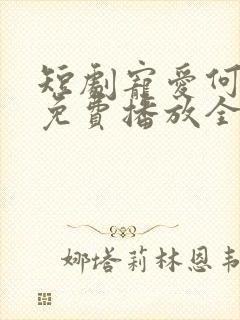 短劇寵愛何
免費播放全
娜塔莉林恩韦